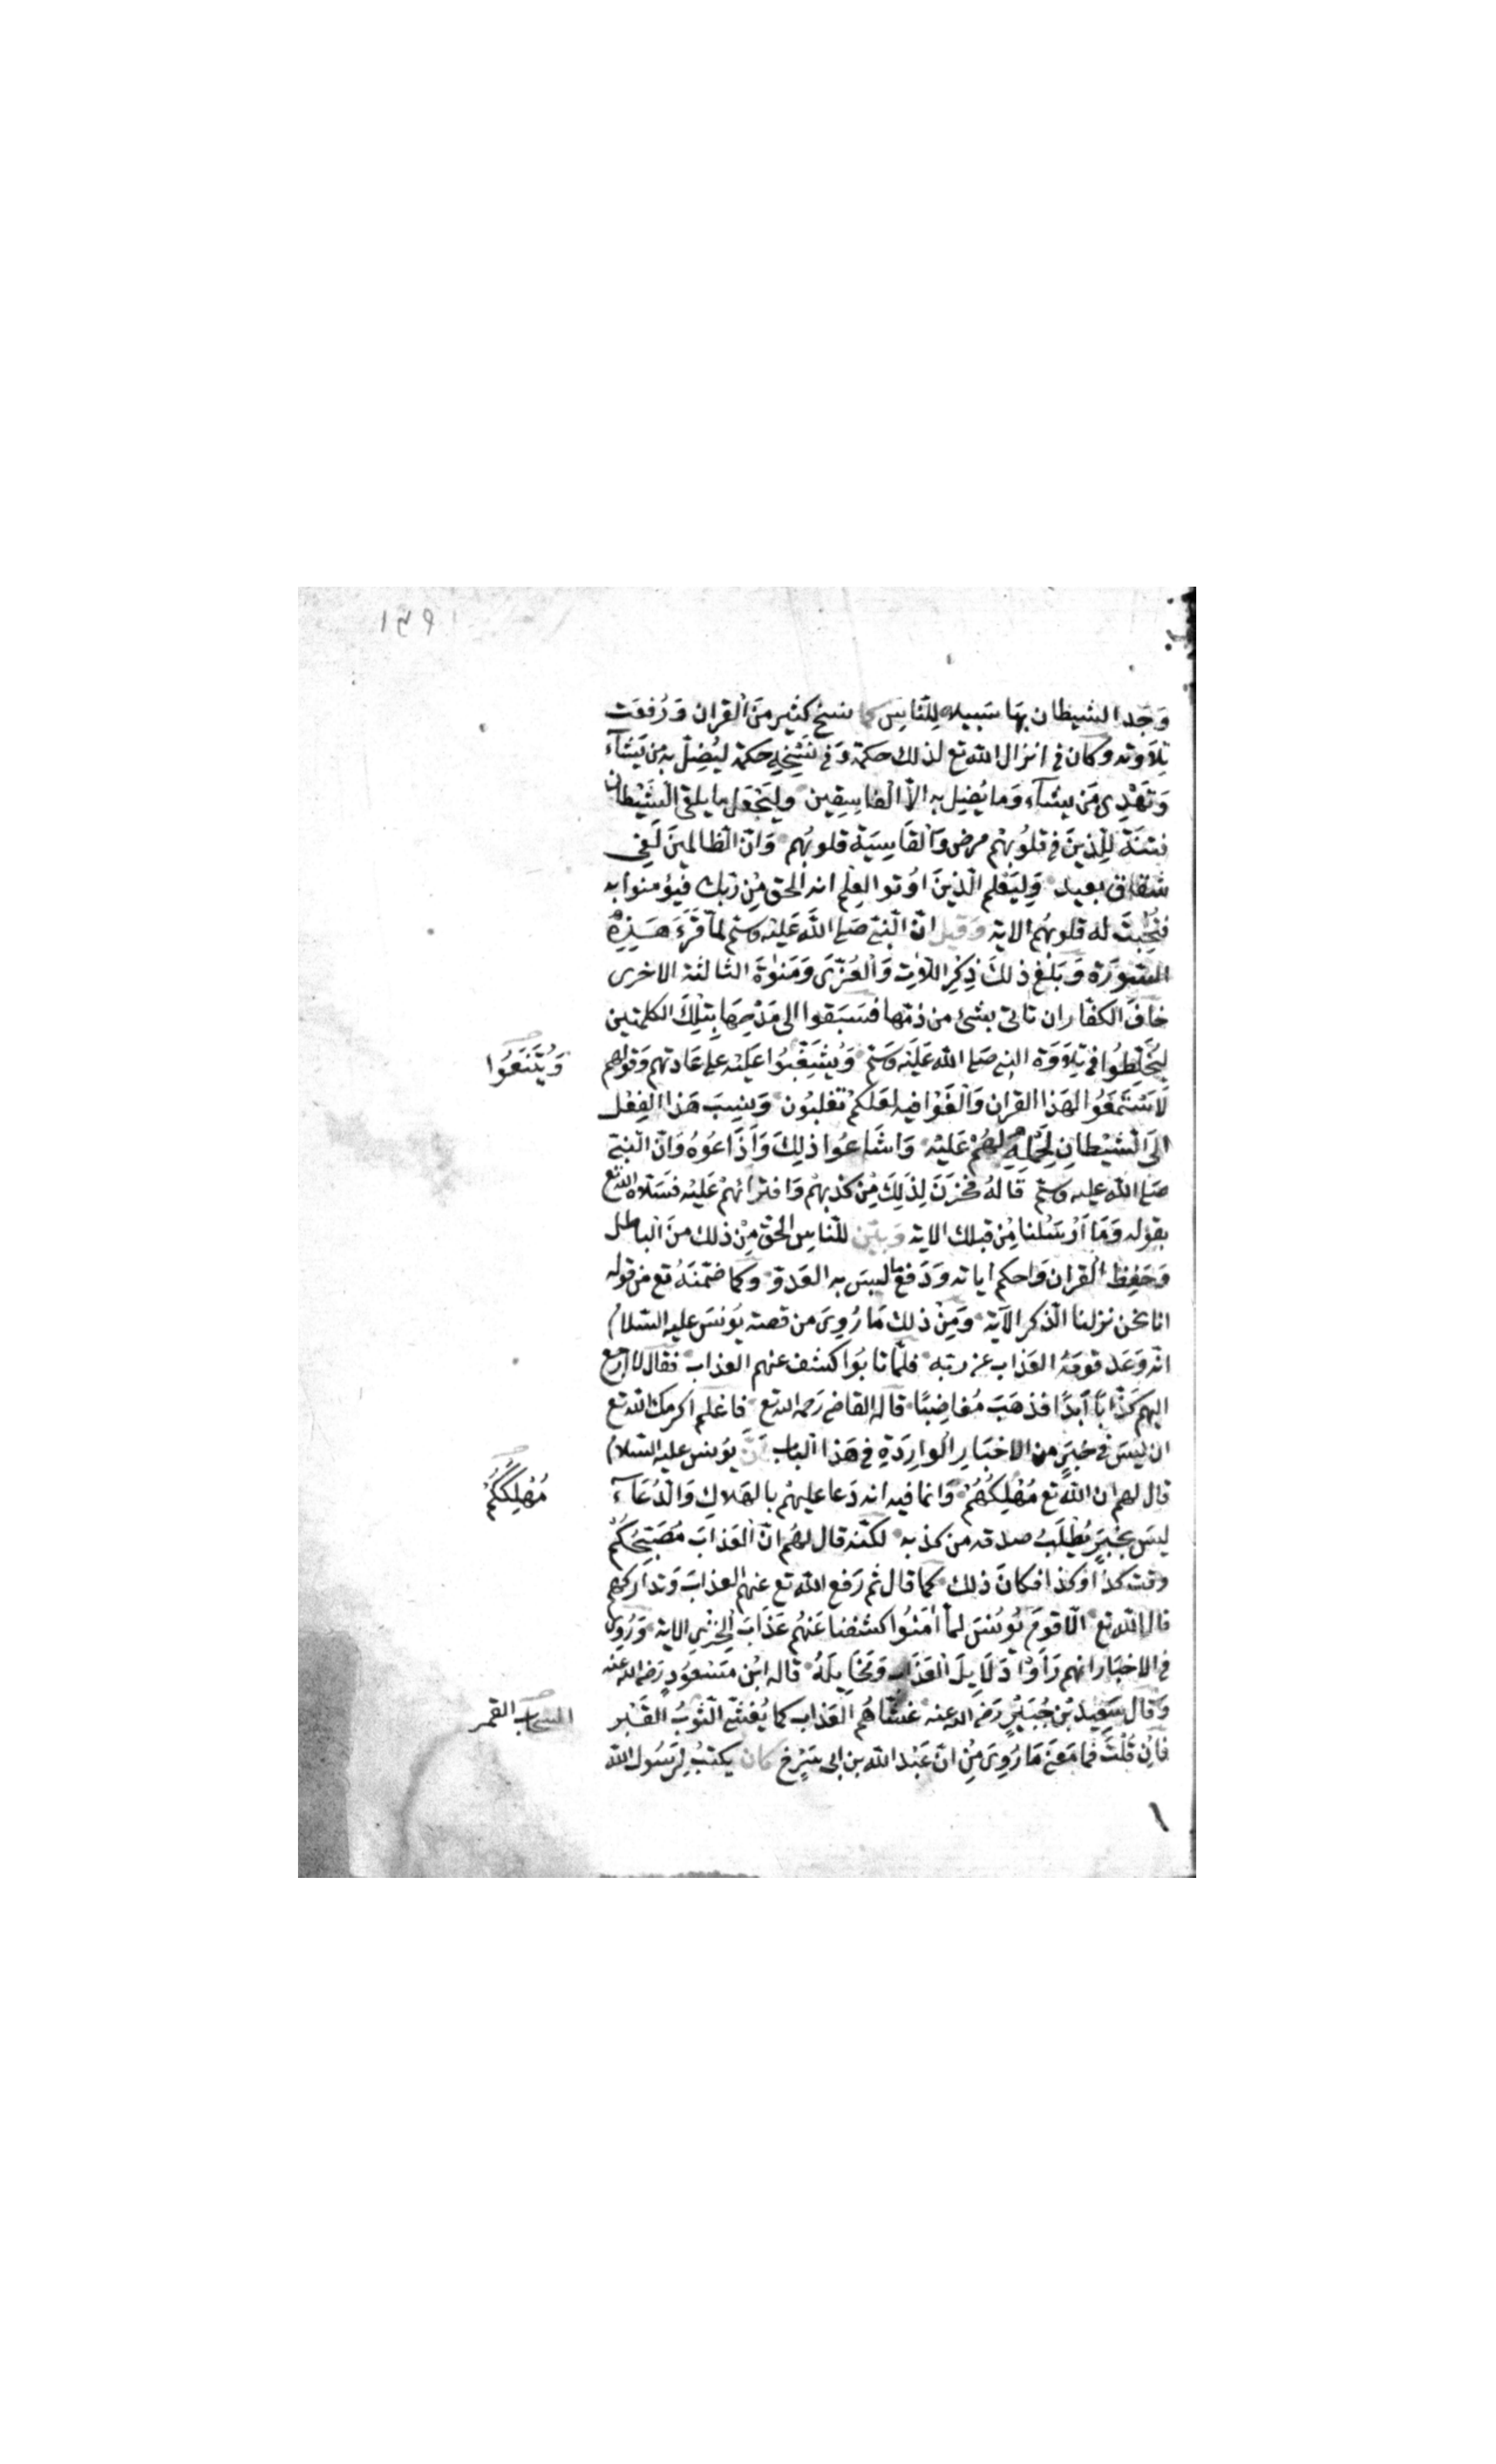 وَجَد الشيطان بهَا سَبيلا لِلنّاسِ كما نسخ كثير مِنَ القران وَرُفعَت
تِلَاوته وكان في انزال الله تع لذلك حكمة وَفي نَسْخِهِ حكمة ليُضِلّ به مَن يَشَآء
وَيَهْدِى مَن يشآء وَما يُضِل به الّا الفاسِقِين وليَجْعَل ما يلقى الشّيْطان
فتنَة للّذينَ في قلُوبهْم مرض وَالقاسِيَة قلوبُهم وَانّ الظالمينَ لَفِى
شقاق بعيد وَليَعْلم الّذينَ اوُتوا العِلم انه الحق مِنْ رَبّك فيؤمنوا به
فتُخْبِتَ له قلوبُهم الاية وَقيل انّ النّبىّ صَلى اللّه عَليْه وسَلم لمّا قَرَءَ هَذِهِ
السّورَة وَبَلغ ذلكَ ذِكر اللّاتِ وَالعُزّى وَمَنوٰة الثالثة الاخرى
خافَ الكفّار ان تاتى بشئ من ذمّها فسَبَقوا الى مَدْحِهَا بتلكَ الكلمتين
ليُخَلِّطُوا في تِلَاوَة النبى صَلى الله عَليْه وسَلم وَيُشَغِّبُوا عَليْه على عَادتهم وَقولهم
وَيُشَنّعُوا
لَا تَسْتَمعُوا لهَذا القران وَالغَوا فيه لعَلكمْ تغلبُون وَنسِبَ هَذا الفِعْل
الَى الشّيْطانِ لِحَمْلِهِ لهُمْ عَليْه وَاشَاعُوا ذلِكَ وَاَذَاعُوهُ وَانّ النّبى
صَلى الله عليه وسلم قالهُ فحَزنَ لِذلِكَ مِنْ كذبهُم وَافترائهمْ عَليْه فسَلّاه الله تع
بقوله وَمَا اَرْسَلنا مِنْ قبلك الاية وَبيّن للنّاسِ الحقّ مِنْ ذلك منَ الباطل
وَحَفِظ القران وَاحكم اياته وَدَفع ما لبسَ به العَدوّ وكما ضمّنَهُ تع من قوله
انا نحن نزلنا الذّكر الآية وَمِنْ ذلك مَا رُوِىَ من قصة يُونسَ عليه السّلام
انّه وَعَد قومَهُ العَذاب عن ربّه فلمّا تابُوا كشف عنهم العذاب فقال لا ارجع
اليهم كَذّابًا اَبدًا فذهَبَ مُغاضِبًا قاله القاضى رَحمه الله تع فاعْلم اكرمك الله تع
ان ليْسَ في خَبَرٍ من الاخبَارِ الوارِدَةِ في هَذا الباب اَنّ يوُنس عليه السّلام
قال لهم ان الله تع مُهْلِكُهُمْ وَانما فيه انه دَعا عليهْم بالهَلاكِ وَالدّعَاء
مُهْلِكُكُمْ
ليسَ بخَبَرٍ يُطلَبُ صدقه من كذبه لكنّه قال لهُم انّ العَذابَ مُصَبّحُكُمْ
وقت كذا وكذا فكانَ ذلك كما قال ثم رَفع الله تع عنهم العذابَ وَتداركهم
قال الله تع الّا قومَ يُونسَ لمّا اٰمَنُوا كشفنا عَنهُم عَذابَ الخزىِ الاية وَرُوِى
في الاخبَار انهم رَاَوْا دَلَايِلَ العَذاب وَمَخايِلَهُ قاله ابن مَسْعُودٍ رَضى الله عنه
وَقال سَعِيد بْن جُبَيْرٍ رَضى الله عنه غشّاهُم العَذاب كما يُغشّى الثّوبُ القَبر
السّحاب القمر
فاِنْ قلْتَ فما مَعْنى مَا رُوِىَ مِنْ انّ عَبْد الله بن ابى سَرْح كان يكتبُ لِرَسُول الله